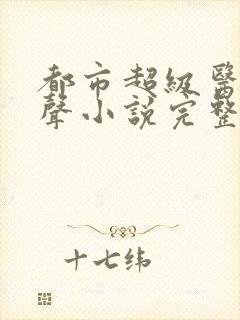 都市超級醫
聲小說完整
十七纬